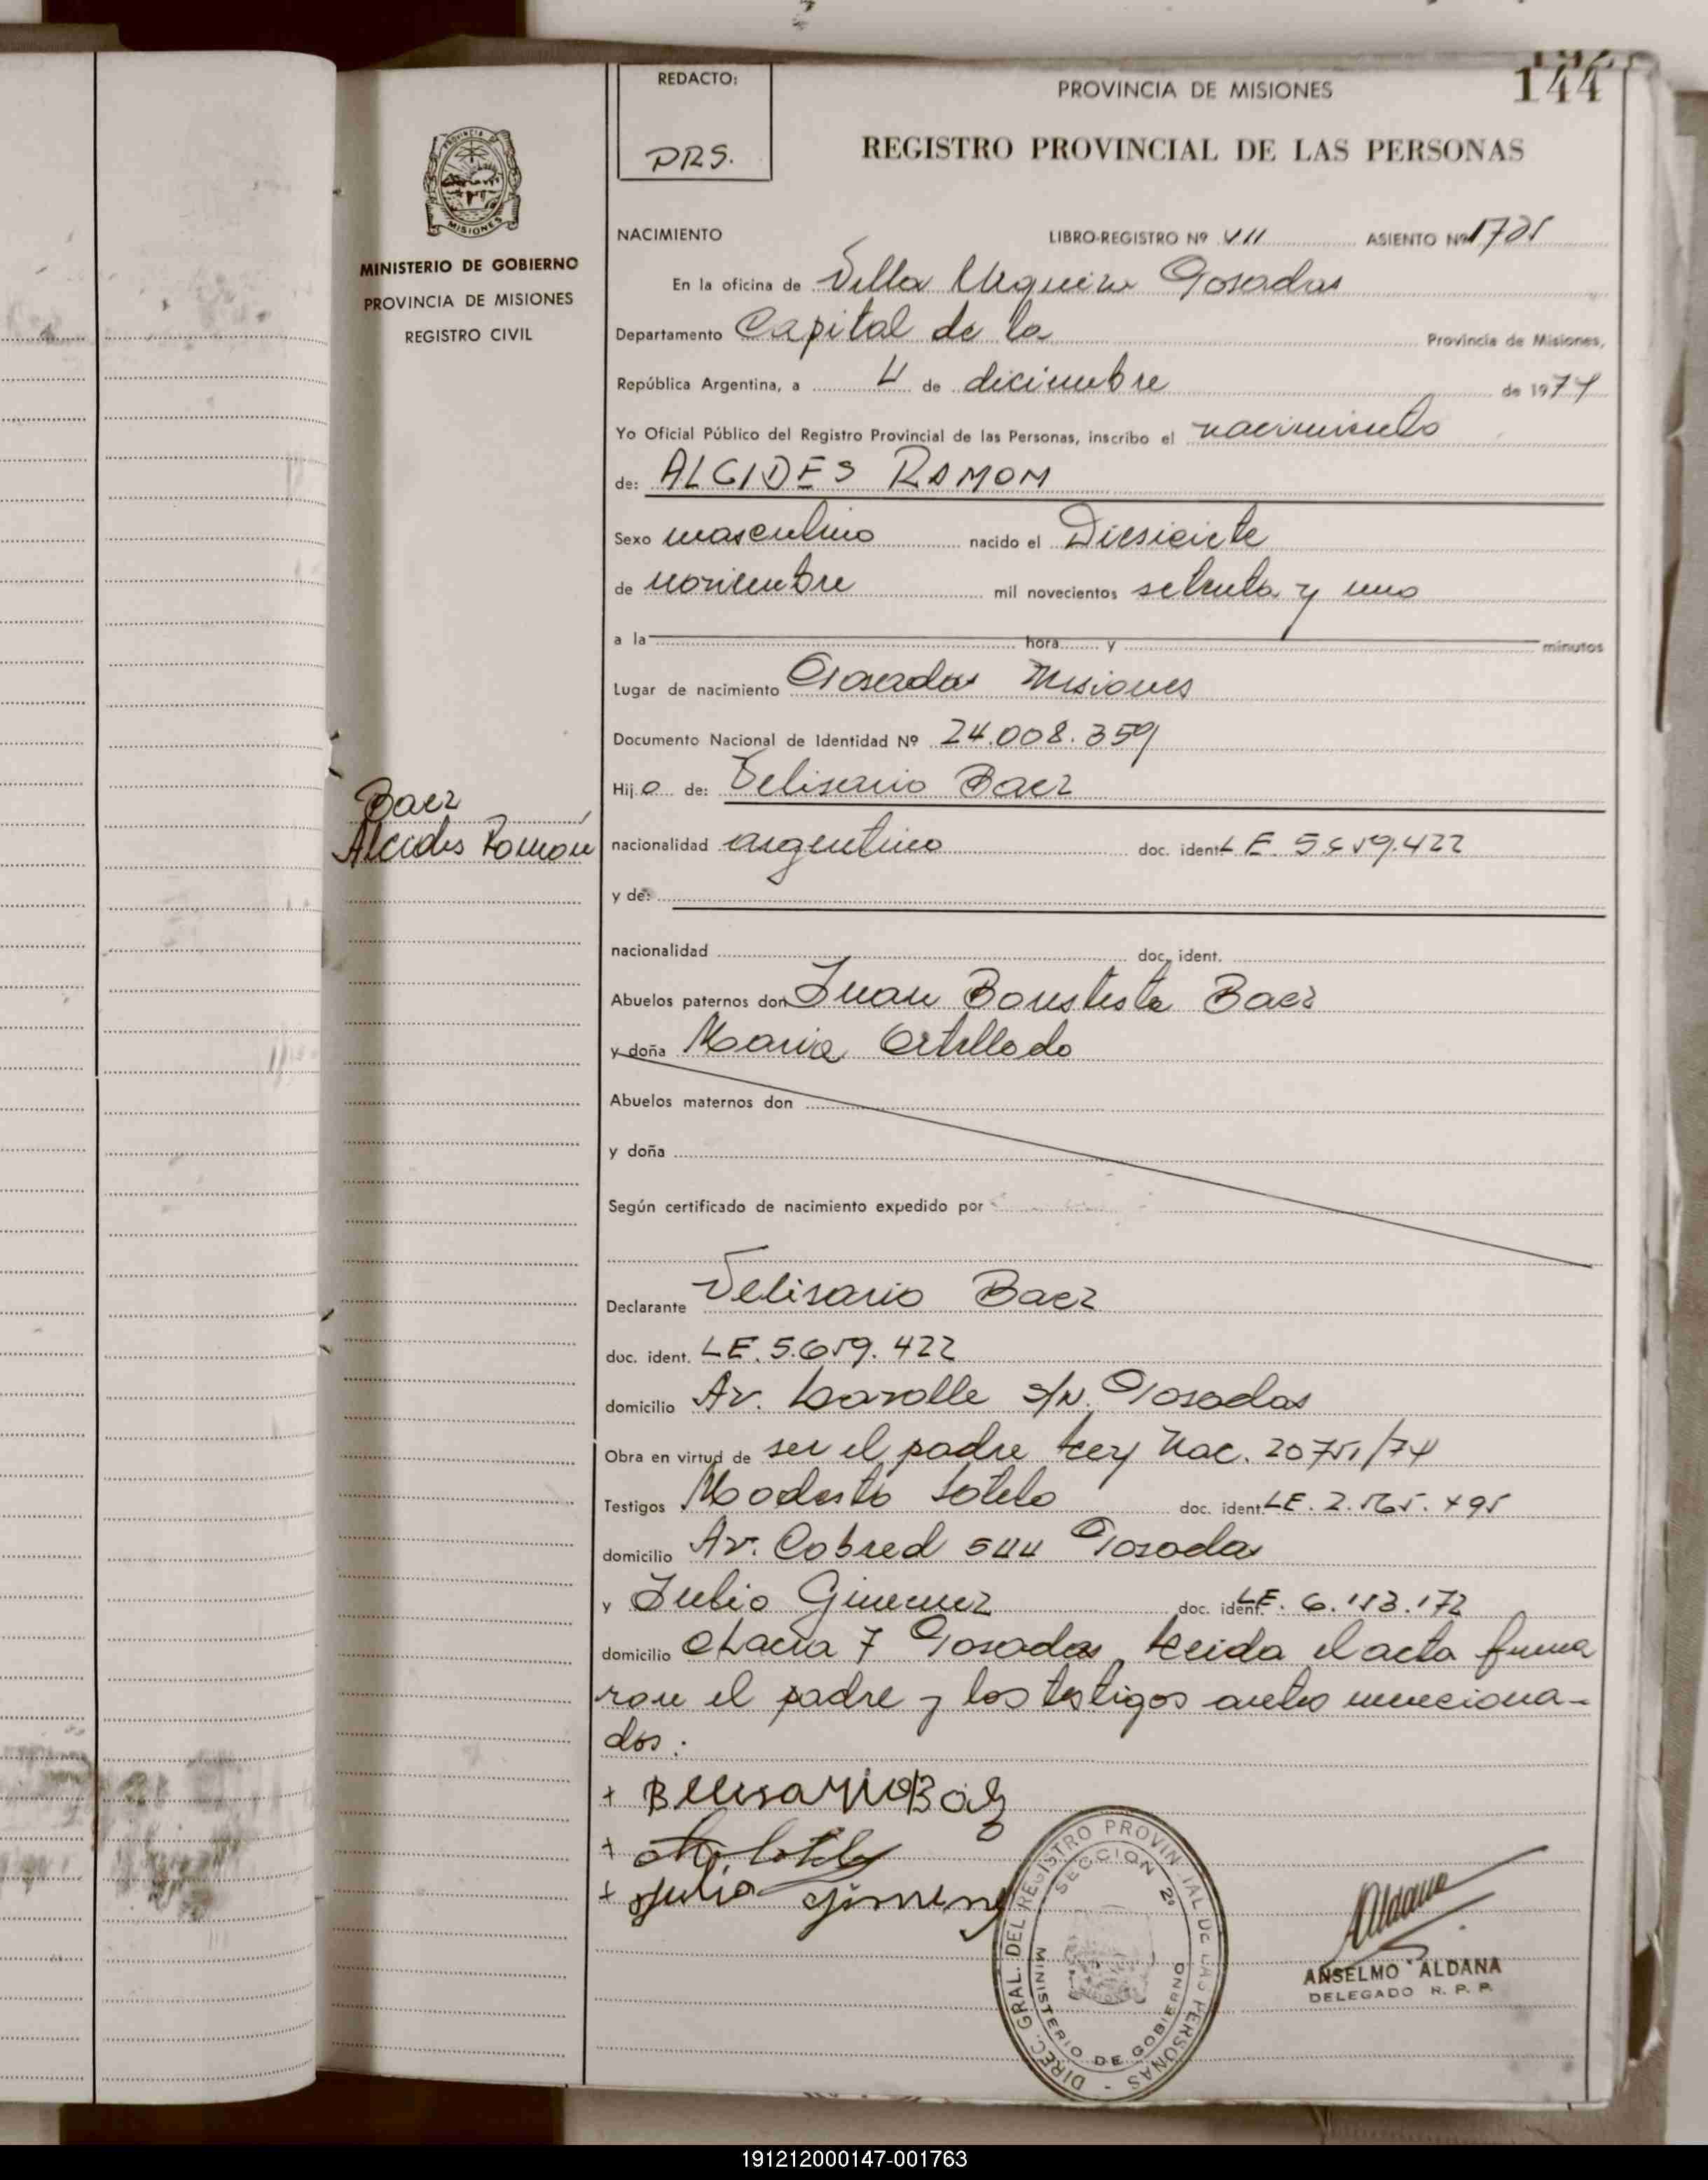 144
REDACTO:
PRS.
PROVINCIA DE MISIONES
REGISTRO PROVINCIAL DE LAS PERSONAS
PROVINCIA DE
MISIONES
MINISTERIO DE GOBIERNO
PROVINCIA DE MISIONES
REGISTRO CIVIL
NACIMIENTO LIBRO-REGISTRO Nº VII ASIENTO Nº 1705
En la oficina de Villa Urquiza Posadas
Departamento Capital de la Provincia de Misiones,
República Argentina, a 4 de diciembre de 1974
Yo Oficial Público del Registro Provincial de las Personas, inscribo el nacimiento
de: ALCIDES RAMON
Sexo masculino nacido el Diesiciete
de noviembre mil novecientos setenta y uno
a la hora y minutos
Lugar de nacimiento Posadas Misiones
Documento Nacional de Identidad Nº 24.008.359
Hijo de: Velisario Baez
Baez
Alcides Ramón
nacionalidad argentino doc. ident. LE. 5.659.422
y de:
nacionalidad doc. ident.
Abuelos paternos don Juan Bautista Baez
y doña Maria
Abuelos maternos don
y doña
Según certificado de nacimiento expedido por
Declarante Velisario Baez
doc. ident. LE. 5.659.422
domicilio Av. Lavalle s/N. Posadas
Obra en virtud de ser el padre Ley Nac. 20751/74
Testigos Modesto Sotelo doc. ident. LE. 2.565.495
domicilio Av. Cabred 544 Posadas
y Julio Gimenez doc. ident. LE. 6.113.172
domicilio Chacra 7 Posadas, Leida el acta firma
ron el padre y los testigos antes menciona-
dos.
+ Belisario Baez
+ M. Sotelo
+ Julio Gimenez
DIREC. GRAL. DEL REGISTRO PROVINCIAL DE LAS PERSONAS -
SECCION 2º
MINISTERIO DE GOBIERNO
Aldana
ANSELMO ALDANA
DELEGADO R. P. P.
191212000147-001763